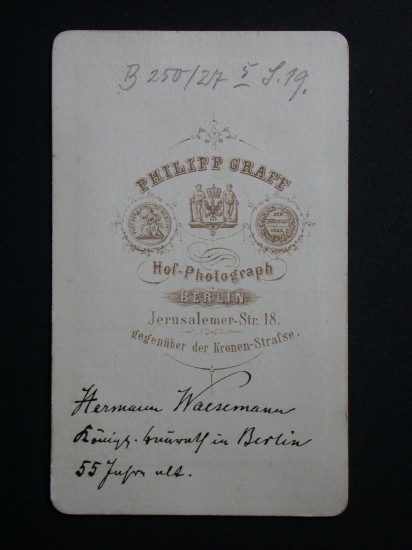 B 250/27 S. 19.
PHILIPP GRAFF
Hof-Photograph
BERLIN
Jerusalemer-Str. 18.
gegenüber der Kronen-Strafse.
Hermann Waesemann
Königl. Baurath in Berlin
55 Jahre alt.